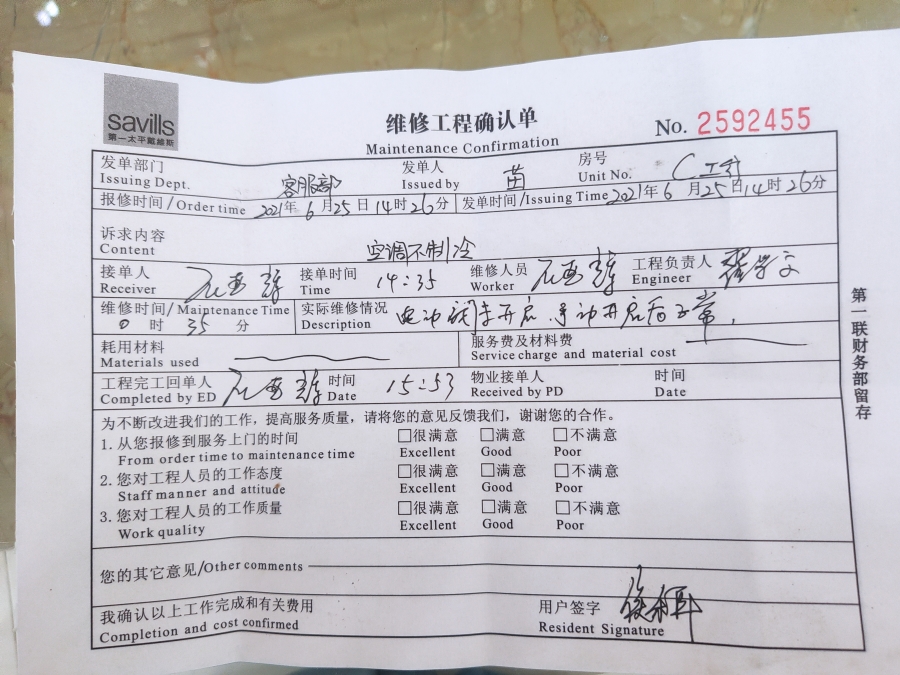 savills
第一太平戴维斯
维修工程确认单
Maintenance Confirmation
No. 2592455
发单部门 客服部 发单人 苗 房号
Issuing Dept. Issued by Unit No. C
报修时间/Order time 2021年6月25日14时26分 发单时间/Issuing Time 2021年6月25日14时26分
诉求内容
Content 空调不制冷
接单人 接单时间 14:35 维修人员 工程负责人
Receiver Time Worker Engineer
维修时间/Maintenance Time 实际维修情况
0时35分 Description 电动阀未开启.手动开启后正常.
耗用材料 服务费及材料费
Materials used Service charge and material cost
工程完工回单人 时间 15:53 物业接单人 时间
Completed by ED Date Received by PD Date
为不断改进我们的工作，提高服务质量，请将您的意见反馈我们，谢谢您的合作。
1. 从您报修到服务上门的时间 □很满意 □满意 □不满意
From order time to maintenance time Excellent Good Poor
2. 您对工程人员的工作态度 □很满意 □满意 □不满意
Staff manner and attitude Excellent Good Poor
3. 您对工程人员的工作质量 □很满意 □满意 □不满意
Work quality Excellent Good Poor
您的其它意见/Other comments
我确认以上工作完成和有关费用 用户签字
Completion and cost confirmed Resident Signature
第一联财务部留存